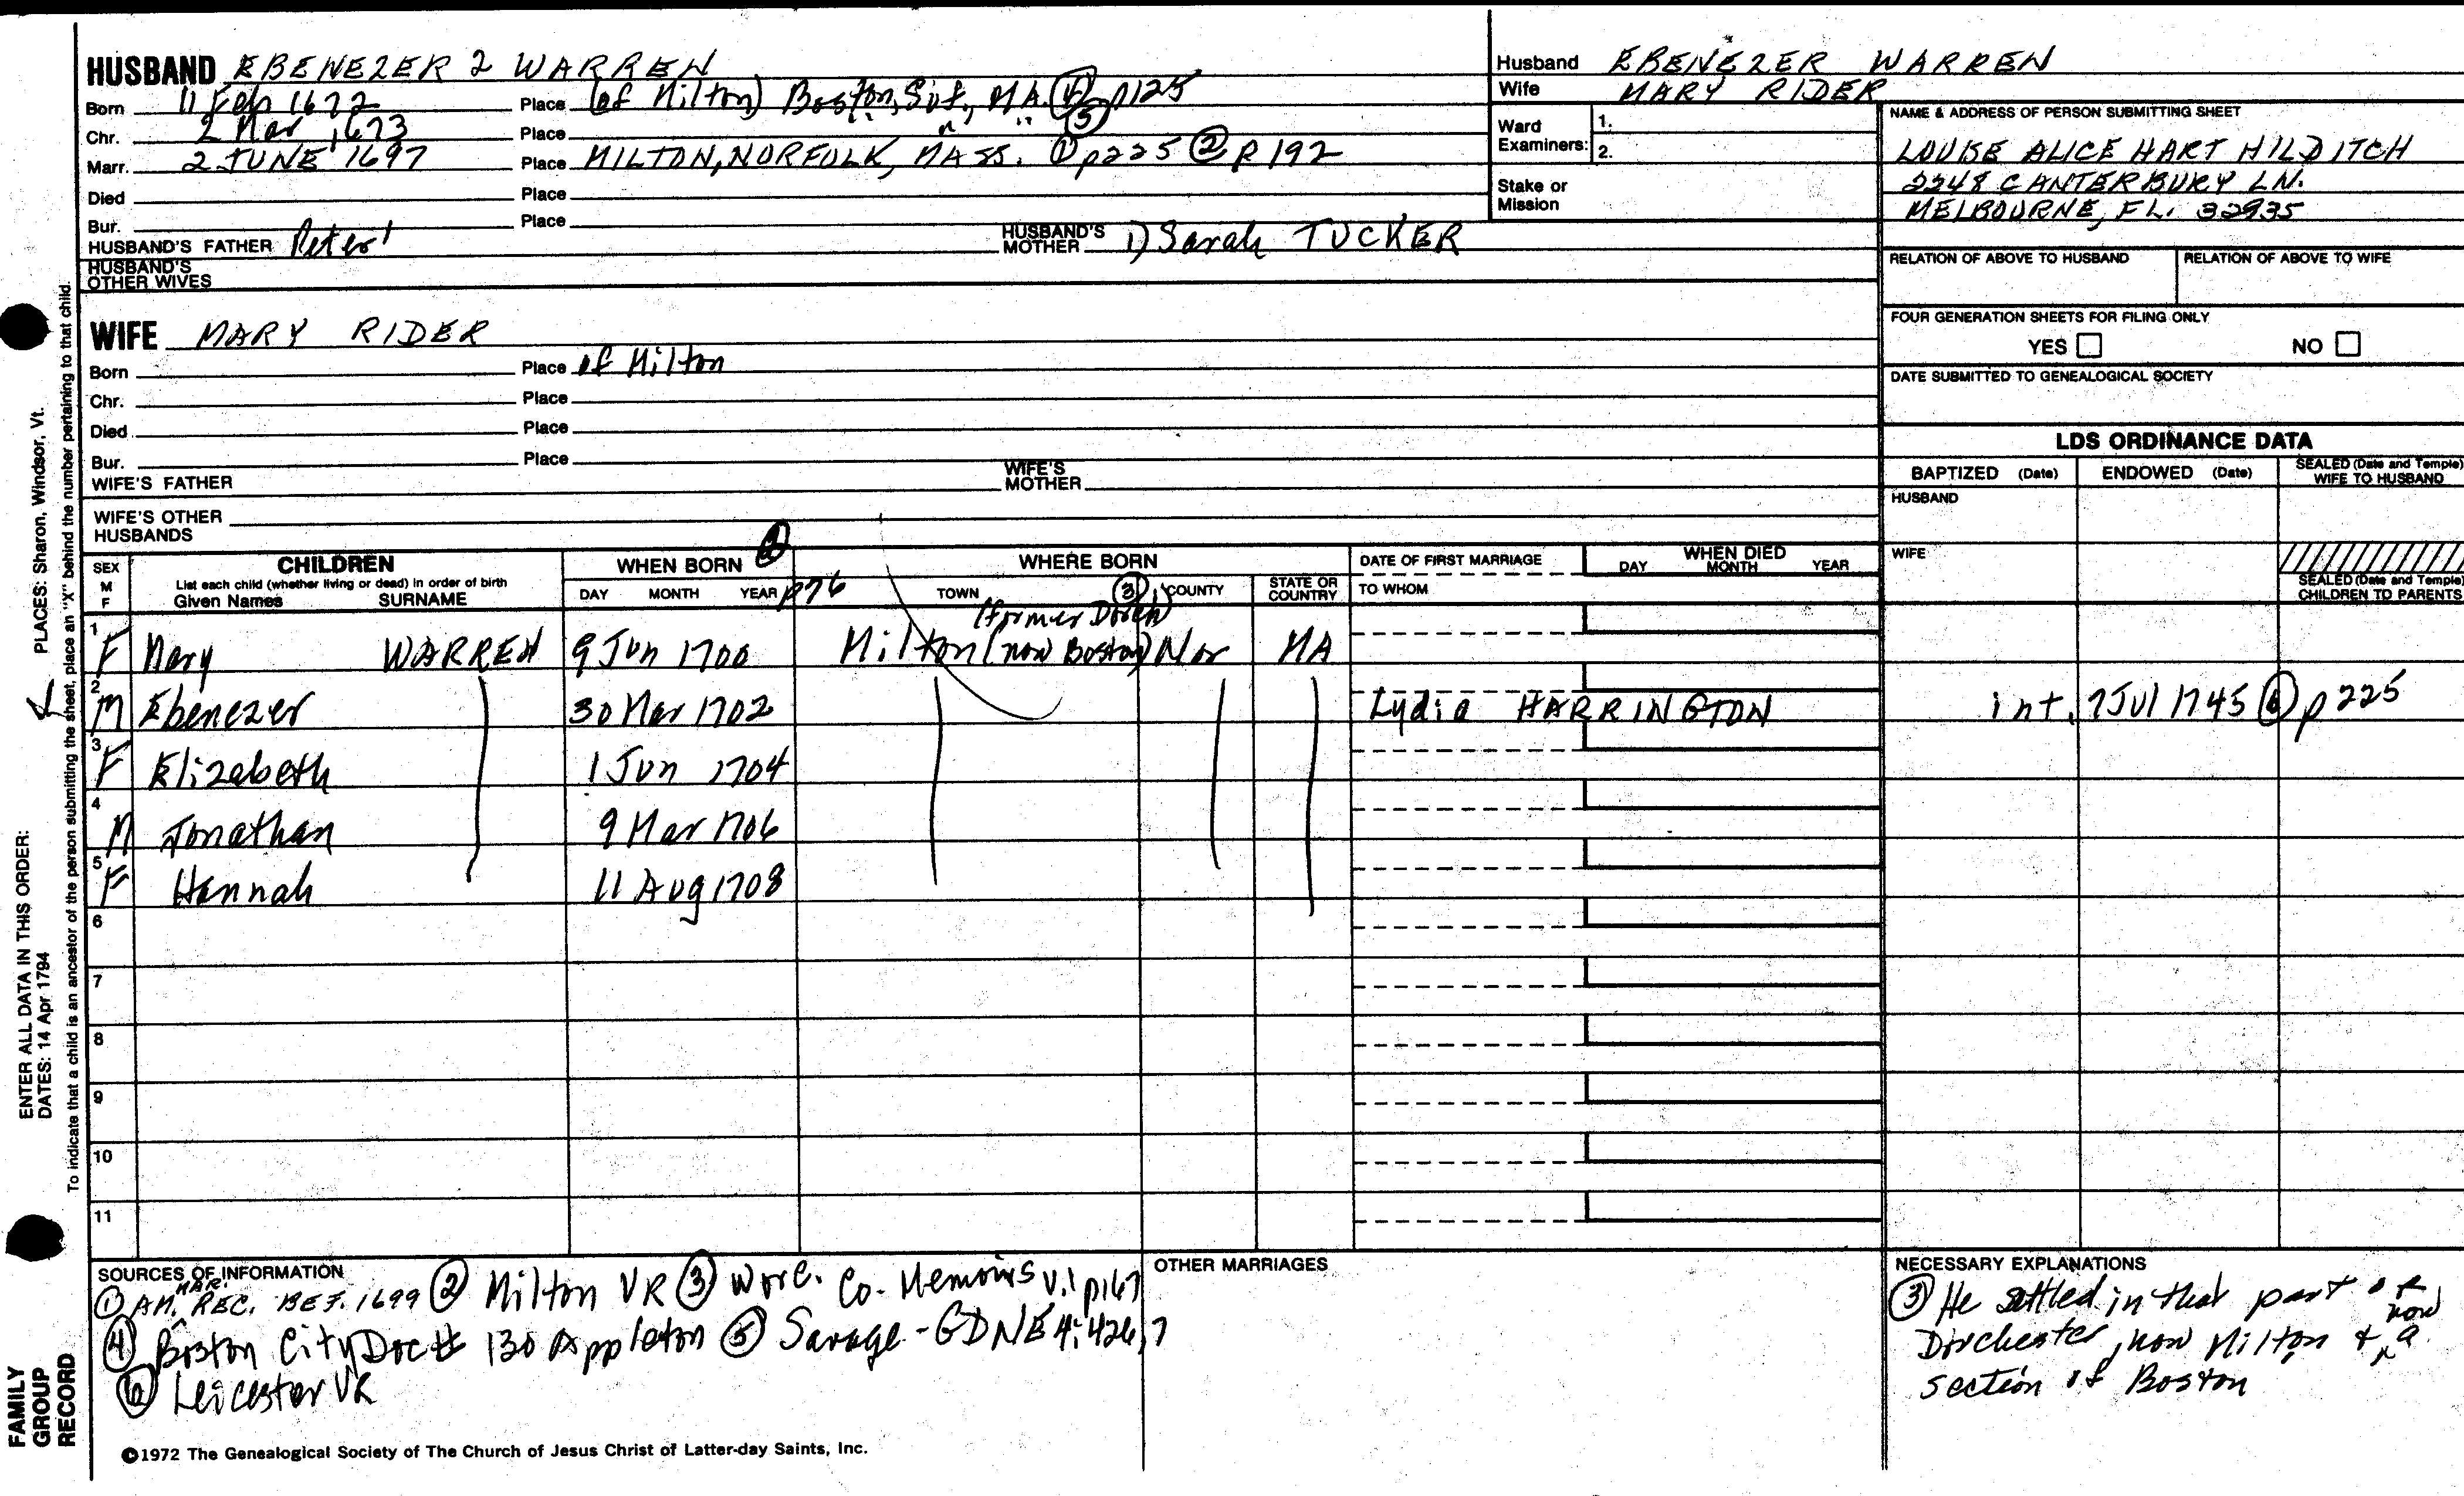 HUSBAND EBENEZER 2 WARREN
Born 11 Feb 1672 Place (of Milton) Boston, Suf., MA. ④ p125
Chr. 2 Mar 1673 Place " " " ⑤
Marr. 2 JUNE 1697 Place MILTON, NORFOLK, MASS. ① p225 ② P 192
Died Place
Bur. Place
HUSBAND'S FATHER Peter¹ HUSBAND'S MOTHER 1) Sarah TUCKER
HUSBAND'S OTHER WIVES
Husband EBENEZER WARREN
Wife MARY RIDER
Ward Examiners: 1.
2.
Stake or Mission
NAME & ADDRESS OF PERSON SUBMITTING SHEET
LOUISE ALICE HART HILDITCH
2248 CANTERBURY LN.
MELBOURNE, FL. 32935
RELATION OF ABOVE TO HUSBAND RELATION OF ABOVE TO WIFE
FOUR GENERATION SHEETS FOR FILING ONLY
YES NO
DATE SUBMITTED TO GENEALOGICAL SOCIETY
WIFE MARY RIDER
Born Place of Milton
Chr. Place
Died Place
Bur. Place
WIFE'S FATHER WIFE'S MOTHER
WIFE'S OTHER HUSBANDS
LDS ORDINANCE DATA
BAPTIZED (Date) ENDOWED (Date) SEALED (Date and Temple) WIFE TO HUSBAND
HUSBAND
WIFE
SEALED (Date and Temple) CHILDREN TO PARENTS
SEX M F
CHILDREN
List each child (whether living or dead) in order of birth
Given Names SURNAME
WHEN BORN
DAY MONTH YEAR p76
WHERE BORN
TOWN ③ COUNTY STATE OR COUNTRY
DATE OF FIRST MARRIAGE
TO WHOM
WHEN DIED
DAY MONTH YEAR
(former Dorch)
1 F Mary WARREN 9 Jun 1700 Milton (now Boston) Nor MA
2 M Ebenezer 30 Mar 1702 Lydia HARRINGTON int. 7 Jul 1745 ⑥ p225
3 F Elizabeth 1 Jun 1704
4 M Jonathan 9 Mar 1706
5 F Hannah 11 Aug 1708
6
7
8
9
10
11
SOURCES OF INFORMATION
① AM. MAR. REC. BEF. 1699 ② Milton VR ③ Worc. Co. Memoirs v.1 p167
④ Boston City Doc# 130 Appleton ⑤ Savage - GDNE 4:426,7
⑥ Leicester VR
OTHER MARRIAGES
NECESSARY EXPLANATIONS
③ He settled in that part of
Dorchester, now Milton & now a
section of Boston
©1972 The Genealogical Society of The Church of Jesus Christ of Latter-day Saints, Inc.
PLACES: Sharon, Windsor, Vt.
ENTER ALL DATA IN THIS ORDER:
DATES: 14 Apr 1794
To indicate that a child is an ancestor of the person submitting the sheet, place an "X" behind the number pertaining to that child.
FAMILY GROUP RECORD